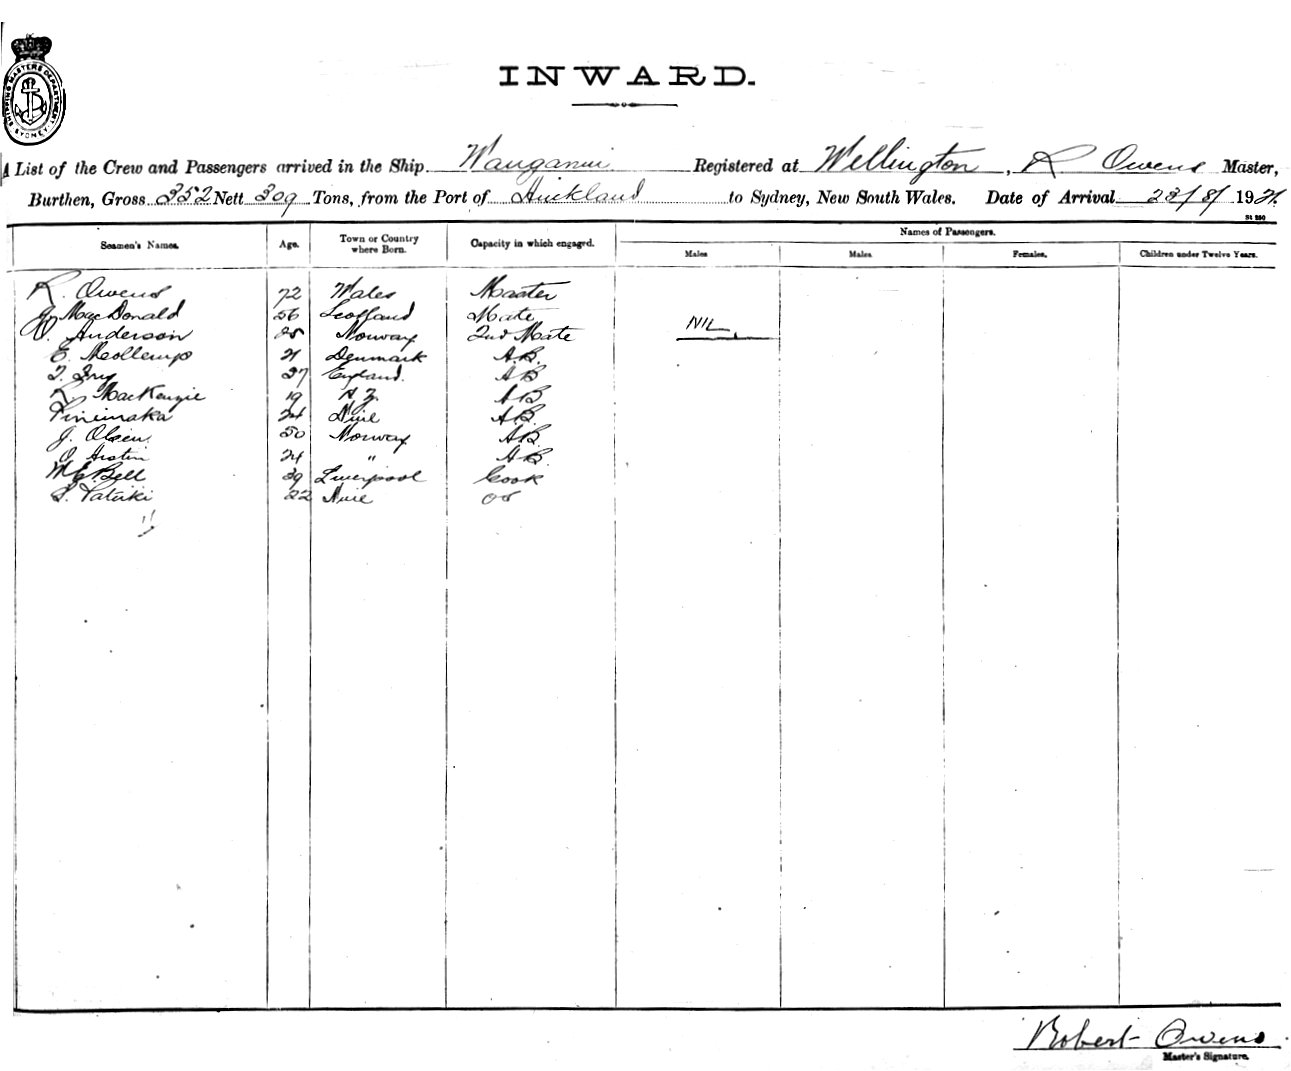 SHIPPING MASTERS DEPARTMENT SYDNEY
INWARD.
A List of the Crew and Passengers arrived in the Ship Wanganui Registered at Wellington, R Owens Master,
Burthen, Gross 352 Nett 309 Tons, from the Port of Auckland to Sydney, New South Wales. Date of Arrival 23/8/1921.
St 250
Names of Passengers.
Seamen's Names. Age. Town or Country where Born. Capacity in which engaged. Males Males Females. Children under Twelve Years.
R. Owens 72 Wales Master
J. MacDonald 56 Scotland Mate
Anderson Norway 2nd Mate
NIL
E. 21 Denmark A.B.
T. 37 England. AB
R MacKenzie 19 N Z AB
24 Niue A.B.
J. Olsen 50 Norway A.B.
24 " A.B.
W E Bell 39 Liverpool Cook
S. Tatuki 22 Niue OS
11
Robert Owens
Master's Signature.